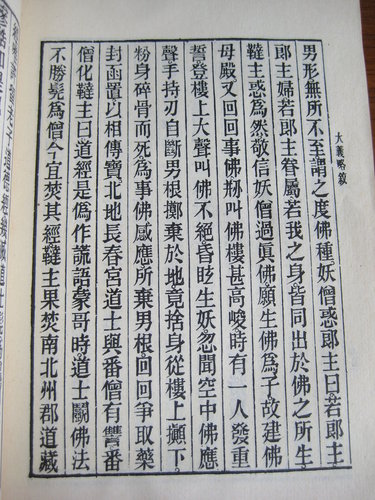 男形無所不至謂之度佛種妖僧惑郎主曰若郎主
郎主婦若郎主眷屬若我之身皆同出於佛之所生
韃主惑爲然敬信妖僧過眞佛願生佛爲子故建佛
母殿又回回事佛剏叫佛樓甚高峻時有一人發重
誓登樓上大聲叫佛不絕昏眩生妖忽聞空中佛應
聲手持刃自斷男根擲棄於地竟捨身從樓上顚下
粉身碎骨而死爲事佛感應所棄男根回回爭取藥
封函置以相傳寶北地長春宮道士與番僧有讐番
僧化韃主曰道經是僞作謊語蒙哥時道士鬭佛法
不勝髡爲僧今宜焚其經韃主果焚南北州郡道藏
大義略敘